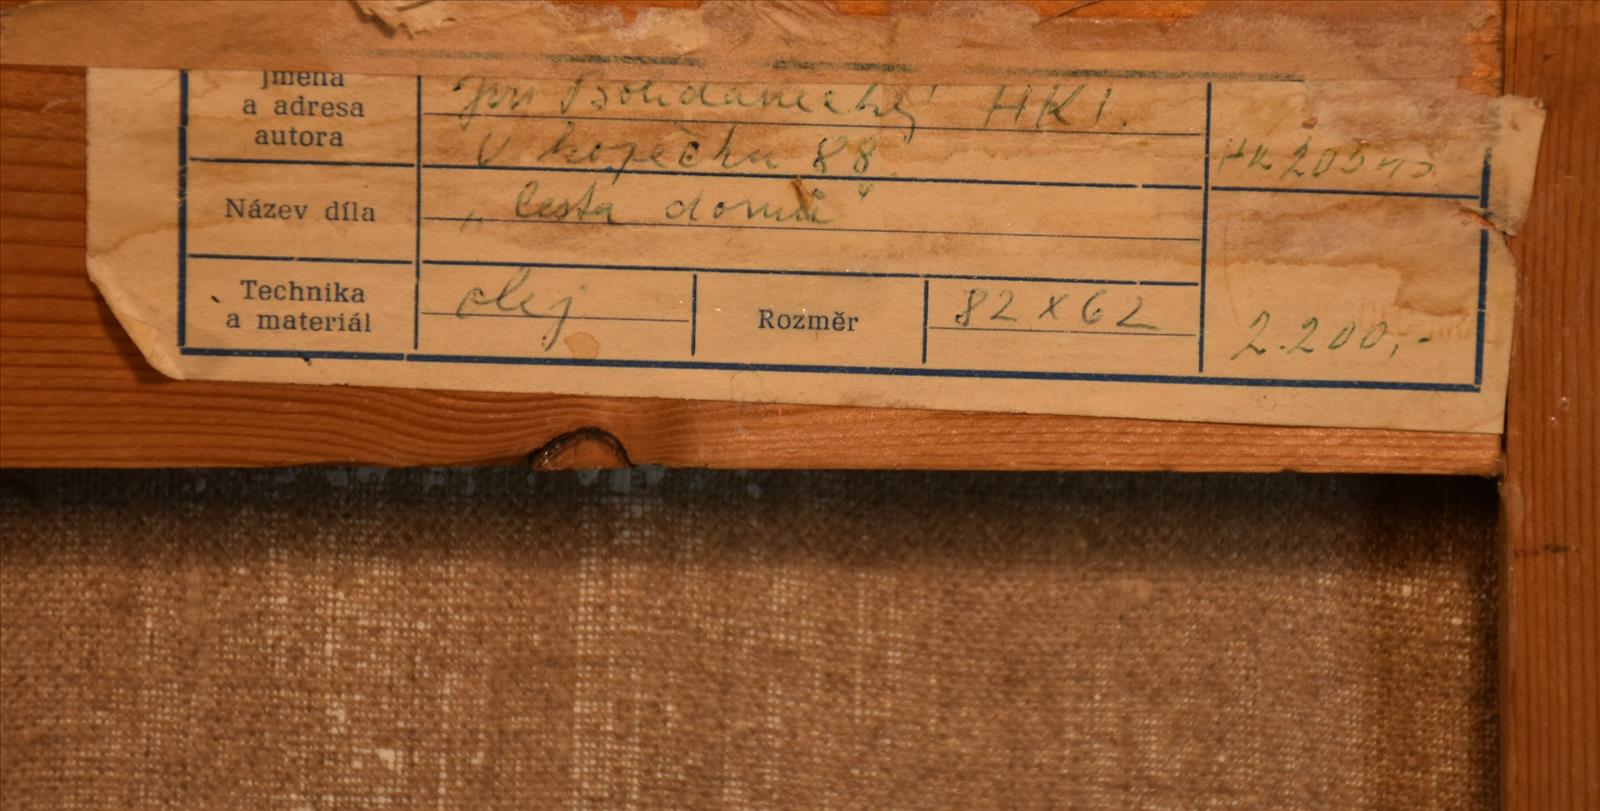 Jména
a adresa
autora
Jiří Bohdanecký HK1.
V kopečku 88
Název díla
„Cesta domů"
Technika
a materiál
olej
Rozměr
82 x 62
2.200,-